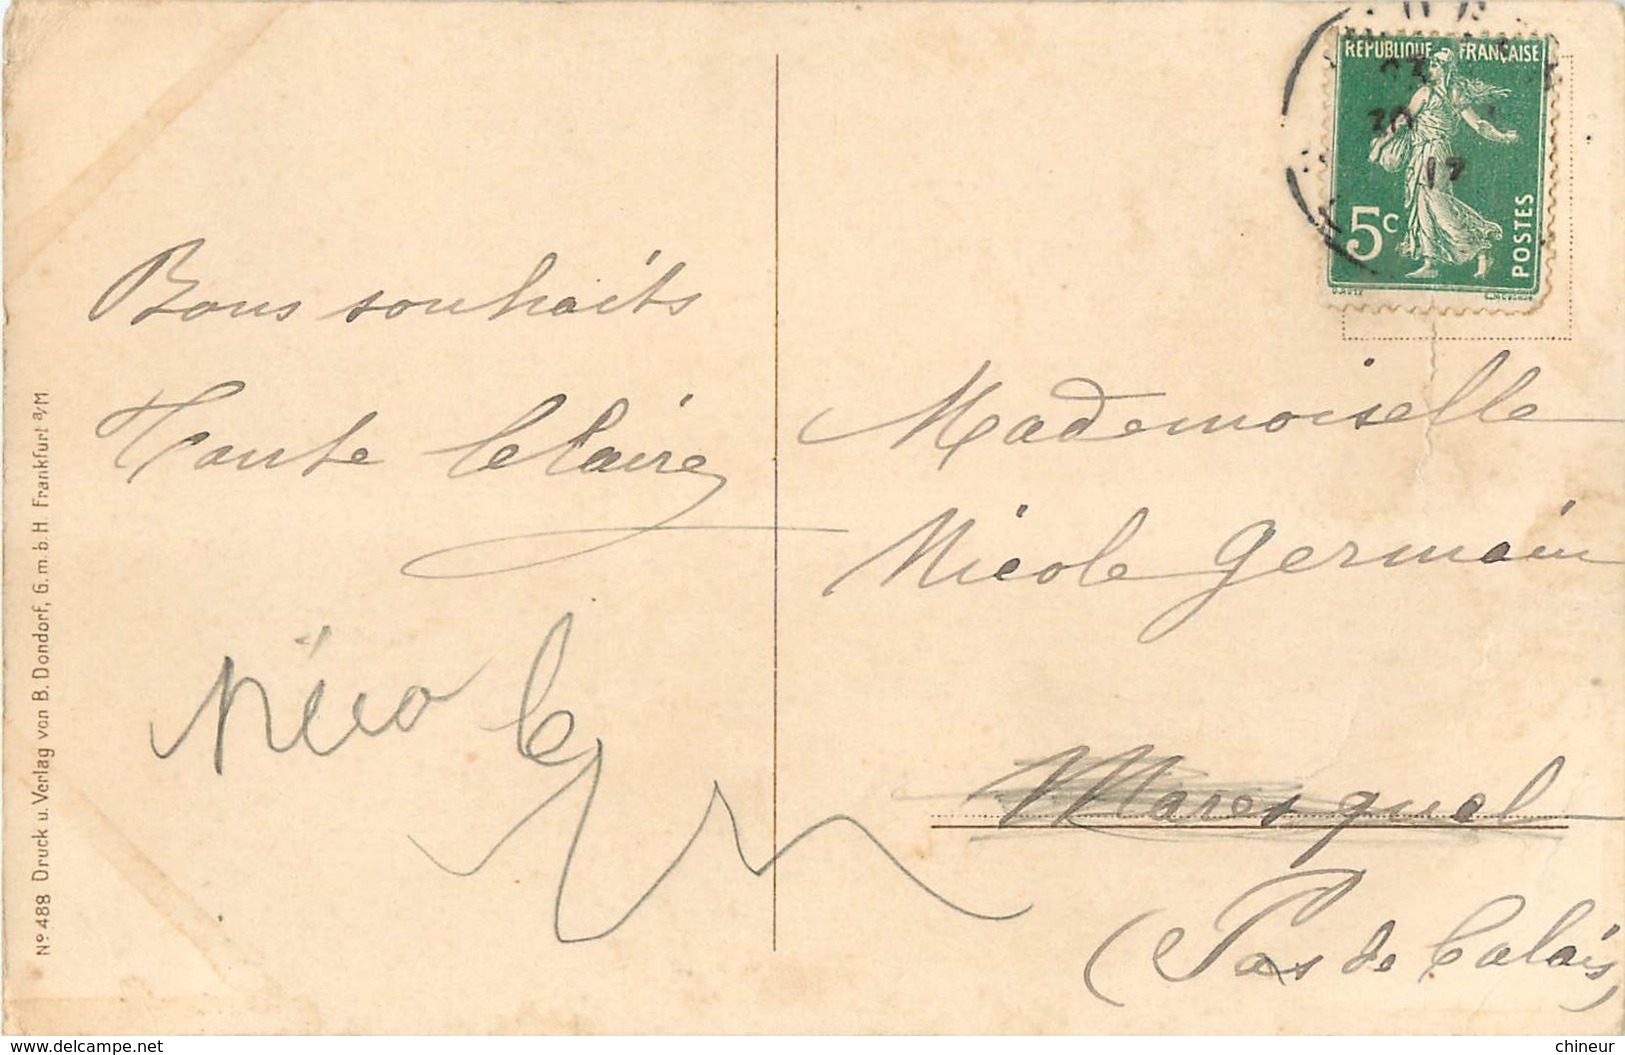 Bons souhaits
Tante Claire
Nicole
Nº 488 Druck u. Verlag von B. Dondorf, G.m.b.H. Frankfurt a/M
RÉPUBLIQUE FRANÇAISE
30
17
5c
POSTES
Mademoiselle
Nicole Germain
Maresquel
(Pas de Calais)
delcampe.net
chineur